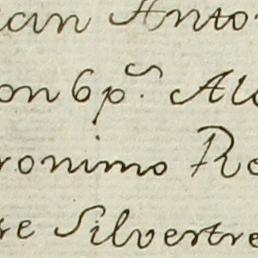 ean Anto
on 6 p.s Alo
eronimo Ro
re Silvertre